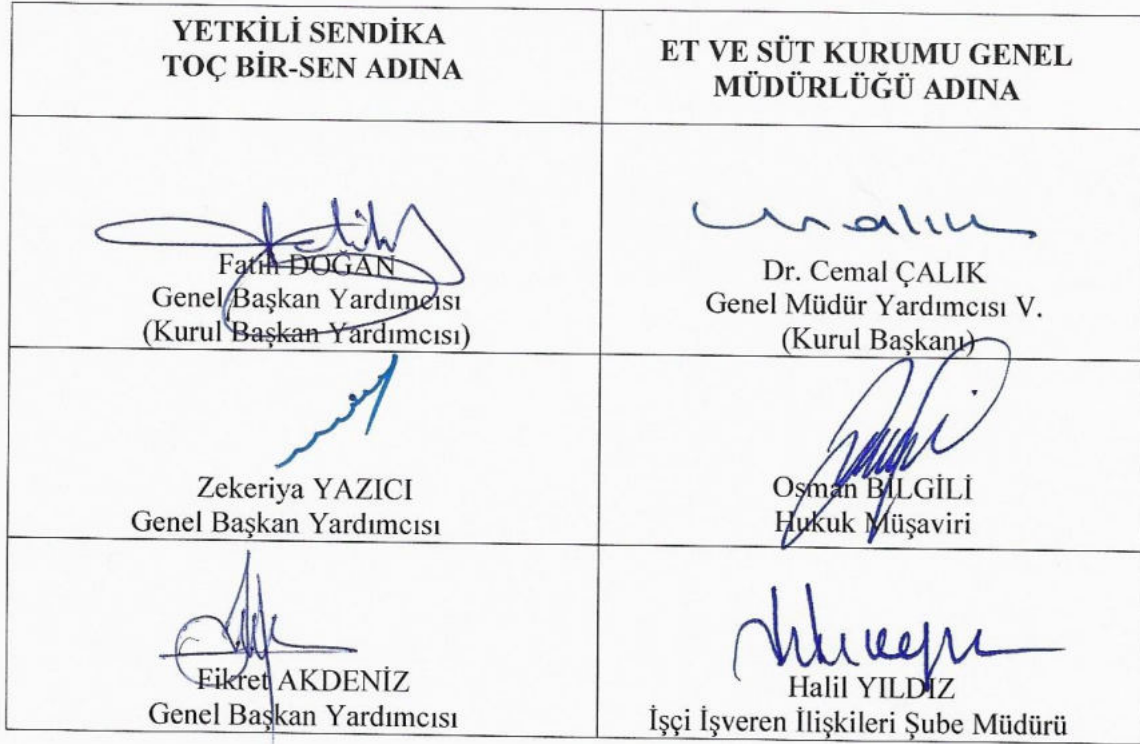 YETKİLİ SENDİKA
TOÇ BİR-SEN ADINA
ET VE SÜT KURUMU GENEL
MÜDÜRLÜĞÜ ADINA
Fatih DOĞAN
Genel Başkan Yardımcısı
(Kurul Başkan Yardımcısı)
Dr. Cemal ÇALIK
Genel Müdür Yardımcısı V.
(Kurul Başkanı)
Zekeriya YAZICI
Genel Başkan Yardımcısı
Osman BİLGİLİ
Hukuk Müşaviri
Fikret AKDENİZ
Genel Başkan Yardımcısı
Halil YILDIZ
İşçi İşveren İlişkileri Şube Müdürü